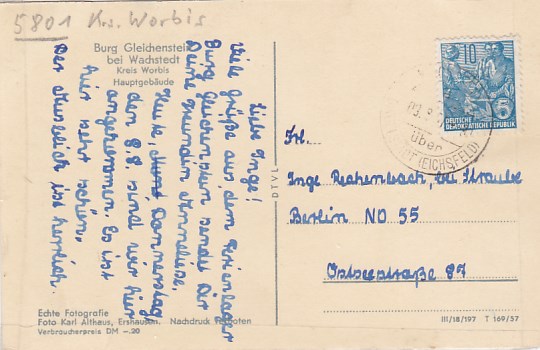 5801 Krs. Worbis
Burg Gleichenstein
bei Wachstedt
Kreis Worbis
Hauptgebäude
Liebe Inge!
Viele Grüße aus dem Ferienlager
Burg Gleichenstein sendet Dir
Deine Freundin Annelise.
Heute, Donnerstag
den 8.8. sind wir hier
angekommen. Es ist
hier sehr schön.
Der Ausblick ist herrlich.
Echte Fotografie
Foto Karl Althaus, Ershausen. Nachdruck verboten
Verbraucherpreis DM -.20
DTVL
10
DEUTSCHE
DEMOKRATISCHE REPUBLIK
5
über
(EICHSFELD)
Frl.
Inge Rechenbach, bei Straube
Berlin NO 55
Ostseestraße 87
III/18/197 T 169/57